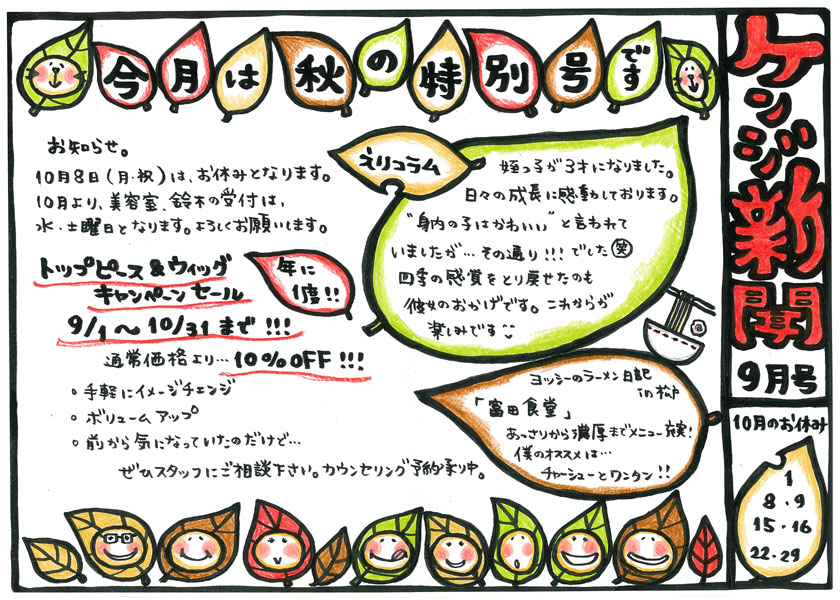 今月は秋の特別号です
ケンジ新聞
9月号
お知らせ。
10月8日(月・祝)は、お休みとなります。
10月より、美容室、鈴木の受付は、
水・土曜日となります。よろしくお願いします。
トップピース&ウィッグ
キャンペーンセール
年に
1度!!
9/1〜10/31まで!!!
通常価格より…10%OFF!!!
・手軽にイメージチェンジ
・ボリュームアップ
・前から気になっていたのだけど…
ぜひスタッフにご相談下さい。カウンセリング予約承り中。
えりコラム
姪っ子が3才になりました。
日々の成長に感動しております。
"身内の子はかわいい"と言われて
いましたが…その通り!!!でした(笑)
四季の感賞をとり戻せたのも
彼女のおかげです。これからが
楽しみです
ヨッシーのラーメン日記
in松戸
「富田食堂」
あっさりから濃厚までメニュー充実!
僕のオススメは…
チャーシューとワンタン!!
10月のお休み
1
8・9
15・16
22・29